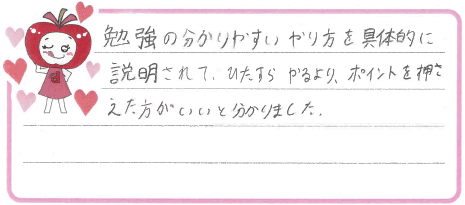 勉強の分かりやすいやり方を具体的に
説明されて、ひたすらやるより、ポイントを押さ
えた方がいいと分かりました。